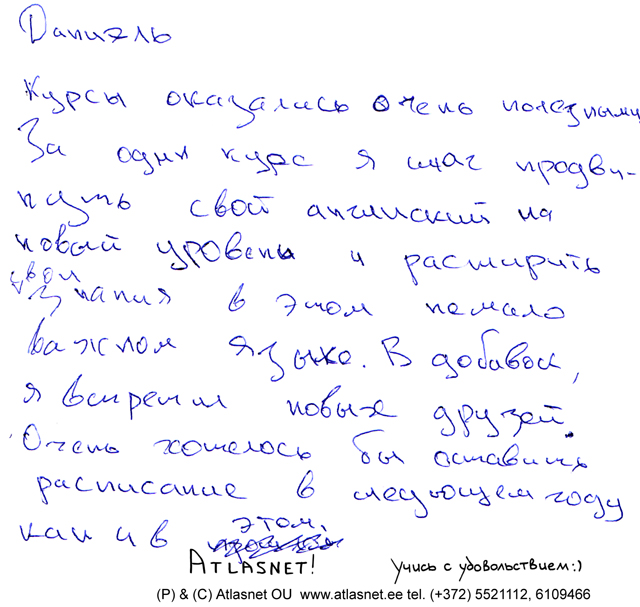 Даниэль
Курсы оказались очень полезными
За один курс я смог продви-
нуть свой английский на
новый уровень и расширить
свои
знания в этом немало
важном языке. В добавок,
я встретил новых друзей.
Очень хотелось бы оставить
расписание в следующем году
как и в этом,
ATLASNET!
Учись с удовольствием:)
(P) & (C) Atlasnet OU www.atlasnet.ee tel. (+372) 5521112, 6109466